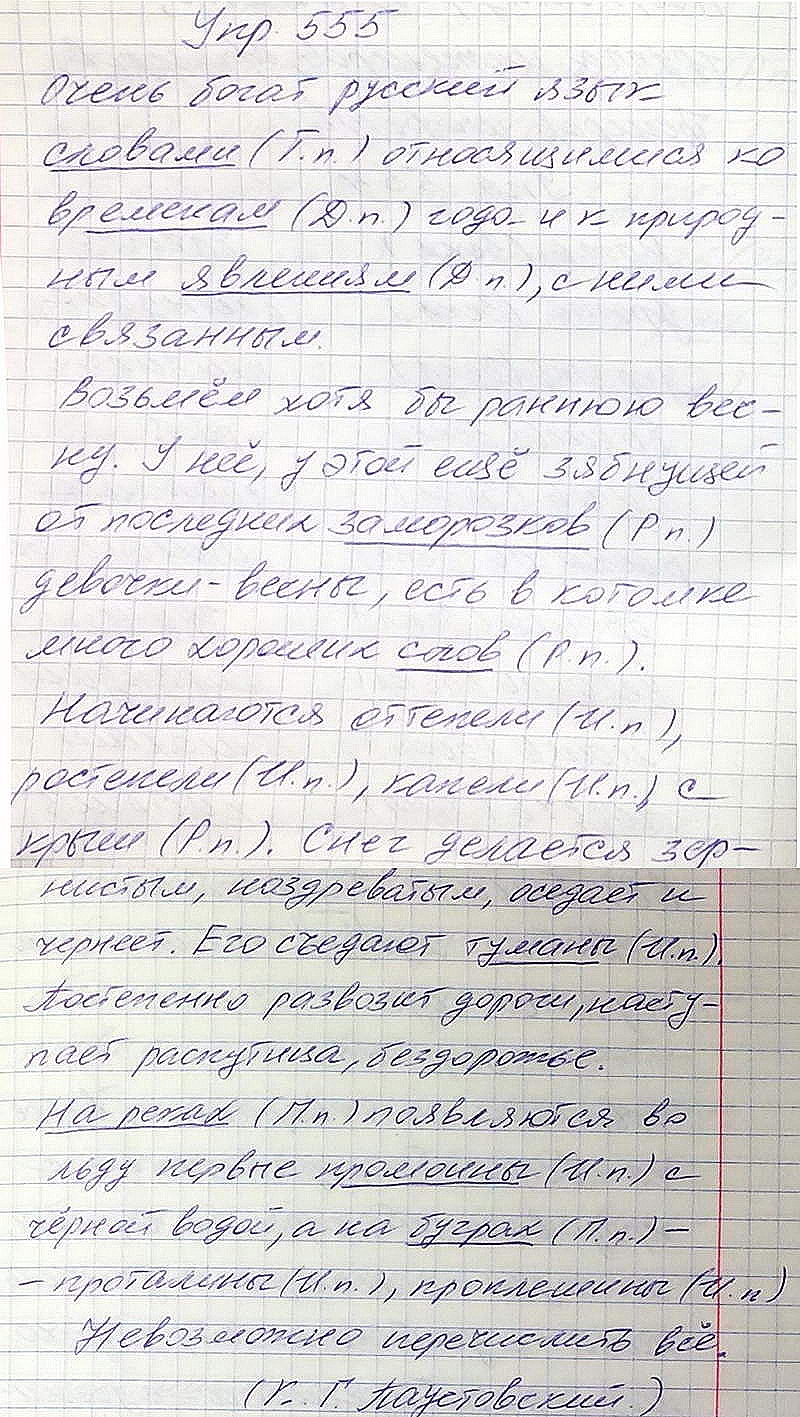 Упр. 555
Очень богат русский язык
словами (Т.п.) относящимися ко
временам (Д.п.) года и к природ-
ным явлениям (Д.п.), с ними
связанным.
Возьмём хотя бы раннюю вес-
ну. У неё, у этой ещё зябнущей
от последних заморозков (Р.п.)
девочки-весны, есть в котомке
много хороших слов (Р.п.).
Начинаются оттепели (И.п),
ростепели (И.п.), капели (И.п.), с
крыш (Р.п.). Снег делается зер-
нистым, ноздреватым, оседает и
чернеет. Его съедают туманы (И.п.).
Постепенно развозит дороги, насту-
пает распутица, бездорожье.
На реках (П.п.) появляются во
льду первые промоины (И.п.) с
чёрной водой, а на буграх (П.п.) -
- проталины (И.п.), проплешины (И.п)
Невозможно перечислить всё.
(К. Г. Паустовский.)